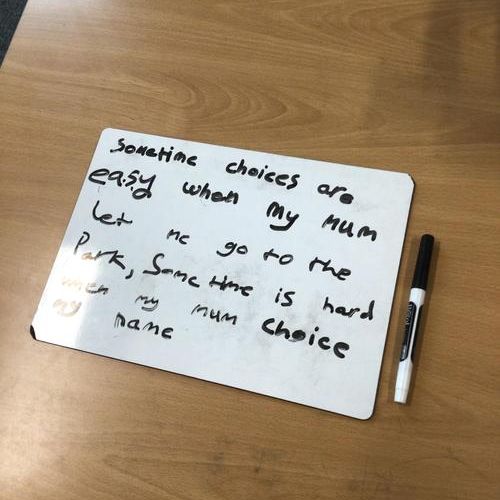 Sometime choices are
easy when my mum
let me go to the
Park, Some time is hard
when my mum choice
my name